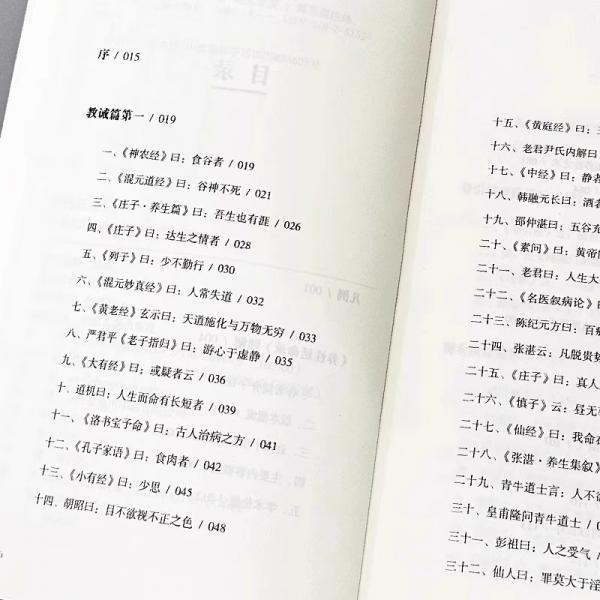 序 / 015
教诫篇第一 / 019
一、《神农经》曰：食谷者 / 019
二、《混元道经》曰：谷神不死 / 021
三、《庄子·养生篇》曰：吾生也有涯 / 026
四、《庄子》曰：达生之情者 / 028
五、《列子》曰：少不勤行 / 030
六、《混元妙真经》曰：人常失道 / 032
七、《黄老经》玄示曰：天道施化与万物无穷 / 033
八、严君平《老子指归》曰：游心于虚静 / 035
九、《大有经》曰：或疑者云 / 036
十、道机曰：人生而命有长短者 / 039
十一、《洛书宝子命》曰：古人治病之方 / 041
十二、《孔子家语》曰：食肉者 / 042
十三、《小有经》曰：少思 / 045
十四、胡昭曰：目不欲视不正之色 / 048
十五、《黄庭经》曰：
十六、老君尹氏内解曰
十七、《中经》曰：静者
十八、韩融元长曰：酒者
十九、邵仲湛曰：五谷充
二十、《素问》曰：黄帝
二十一、老君曰：人生大
二十二、《名医叙病论》曰
二十三、陈纪元方曰：百病
二十四、张湛云：凡脱贵势
二十五、《庄子》曰：真人
二十六、《慎子》云：昼无
二十七、《仙经》曰：我命在
二十八、《张湛·养生集叙》
二十九、青牛道士言：人不
三十、皇甫隆问青牛道士 / 0
三十一、彭祖曰：人之受气 /
三十二、仙人曰：罪莫大于淫
目录
凡例 / 001